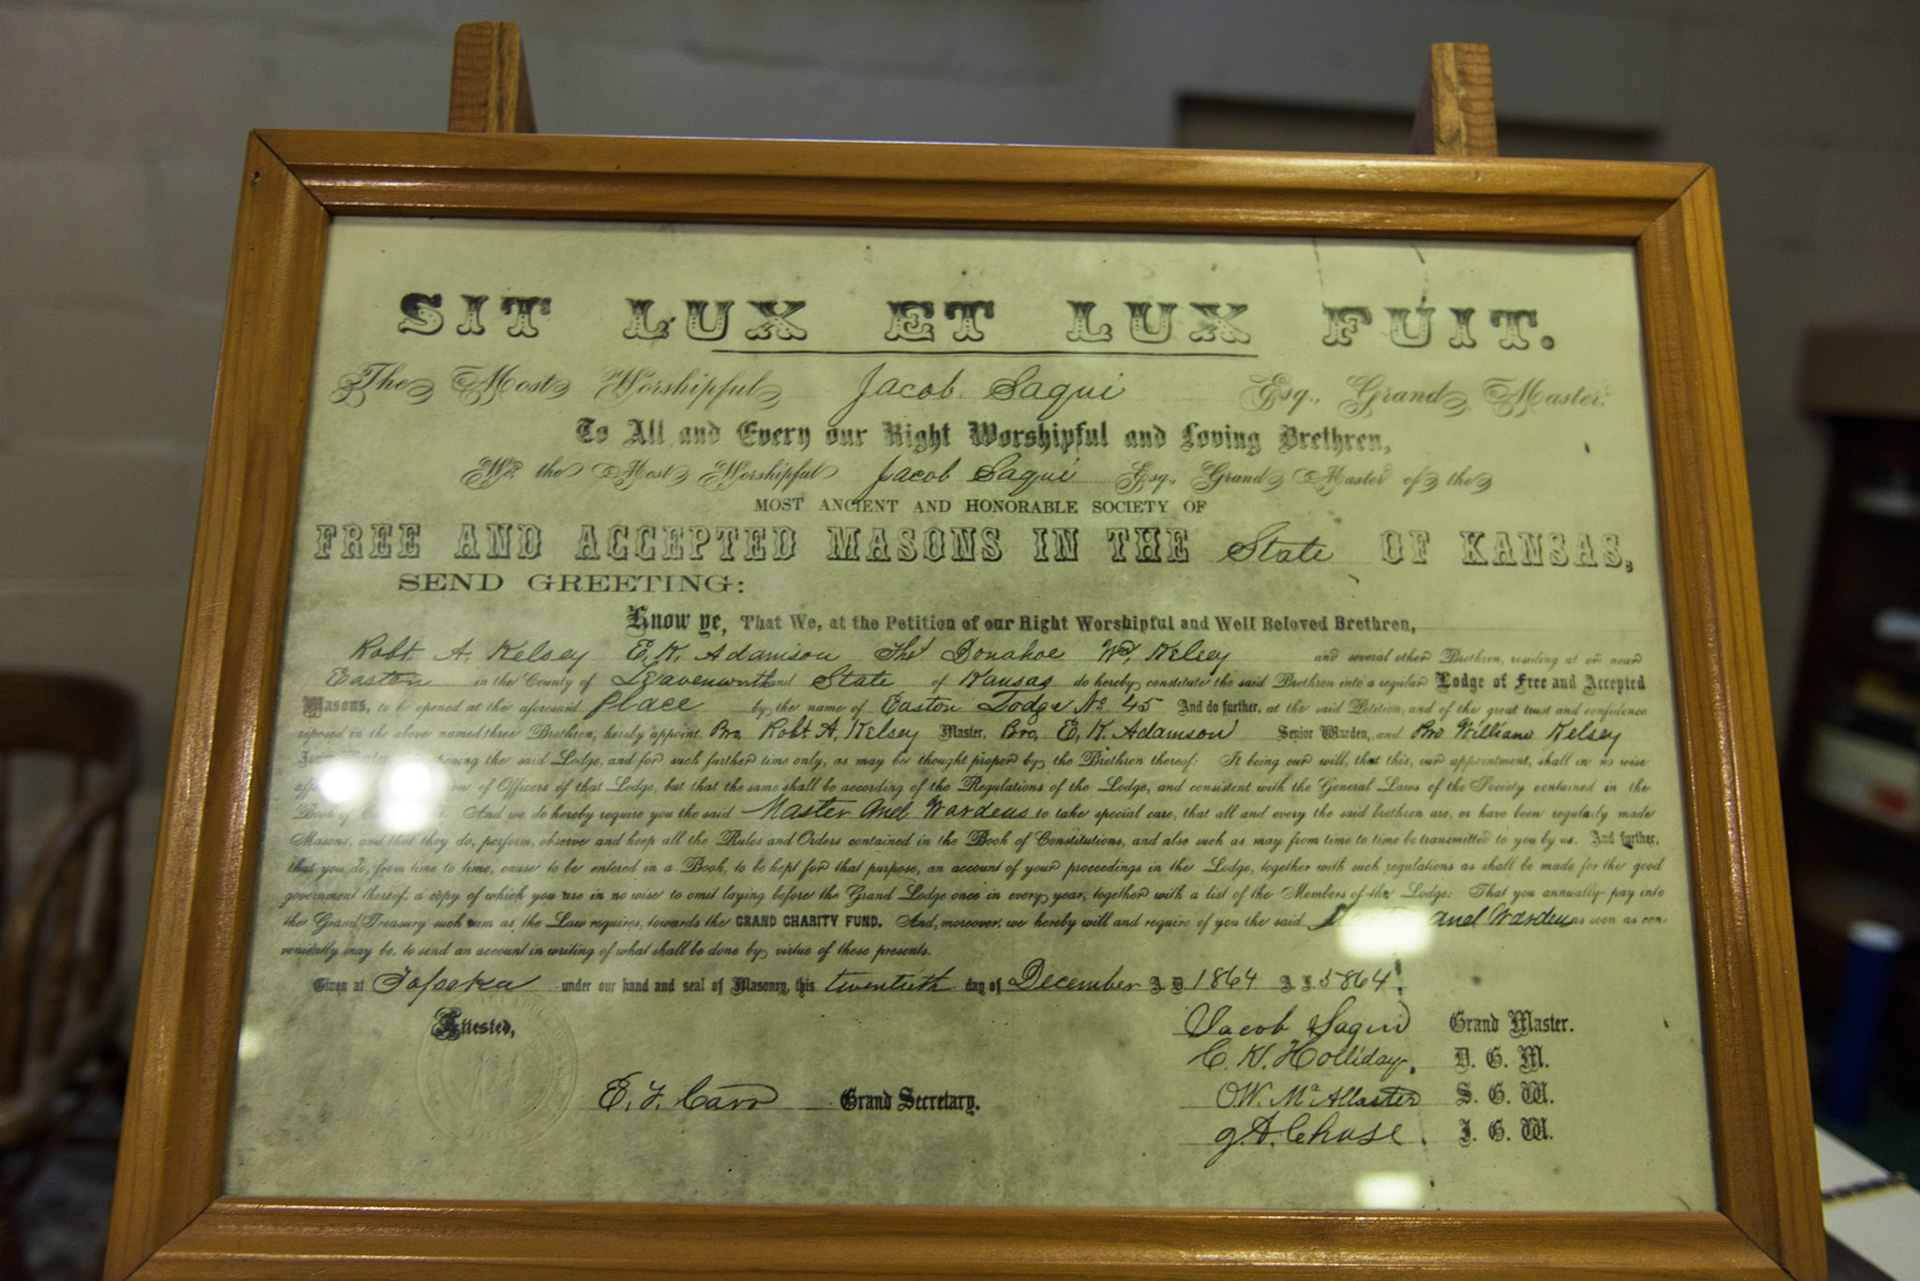 SIT LUX ET LUX FUIT.
The Most Worshipful Jacob Saqui Esq., Grand Master.
To All and Every our Right Worshipful and Loving Brethren,
We the Most Worshipful Jacob Saqui Esq., Grand Master of the
MOST ANCIENT AND HONORABLE SOCIETY OF
FREE AND ACCEPTED MASONS IN THE State OF KANSAS,
SEND GREETING:
Know ye, That We, at the Petition of our Right Worshipful and Well Beloved Brethren,
Robt A. Kelsey E. K. Adamson Donahoe Wm. Kelsey and several other Brethren, residing at or near
Easton in the County of Leavenworth and State of Kansas do hereby constitute the said Brethren into a regular Lodge of Free and Accepted
Masons, to be opened at the aforesaid place by the name of Easton Lodge No. 45 And do further, at the said Petition, and of the great trust and confidence
reposed in the above named three Brethren, hereby appoint Bro Robt A. Kelsey Master, Bro, E. K. Adamson Senior Warden, and Bro William Kelsey
Junior Warden, opening the said Lodge, and for such further time only, as may be thought proper by the Brethren thereof: It being our will, that this, our appointment, shall in no wise
of Officers of that Lodge, but that the same shall be according of the Regulations of the Lodge, and consistent with the General Laws of the Society contained in the
Book of And we do hereby require you the said Master and Wardens to take special care, that all and every the said brethren are, or have been regularly made
Masons, and that they do, perform, observe and keep all the Rules and Orders contained in the Book of Constitutions, and also such as may from time to time be transmitted to you by us. And further,
that you do, from time to time, cause to be entered in a Book, to be kept for that purpose, an account of your proceedings in the Lodge, together with such regulations as shall be made for the good
government thereof, a copy of which you are in no wise to omit laying before the Grand Lodge once in every year, together with a list of the Members of the Lodge: That you annually pay into
the Grand Treasury such sum as the Law requires, towards the GRAND CHARITY FUND. And, moreover, we hereby will and require of you the said and Wardens as soon as con-
veniently may be, to send an account in writing of what shall be done by virtue of these presents.
Given at Topeka under our hand and seal of Masonry, this twentieth day of December A D 1864 A L 5864
Attested,
Jacob Saqui Grand Master.
C. K. Holliday, D. G. M.
O.W. McAllaster S. G. W.
E. T. Carr Grand Secretary.
J. G. W.